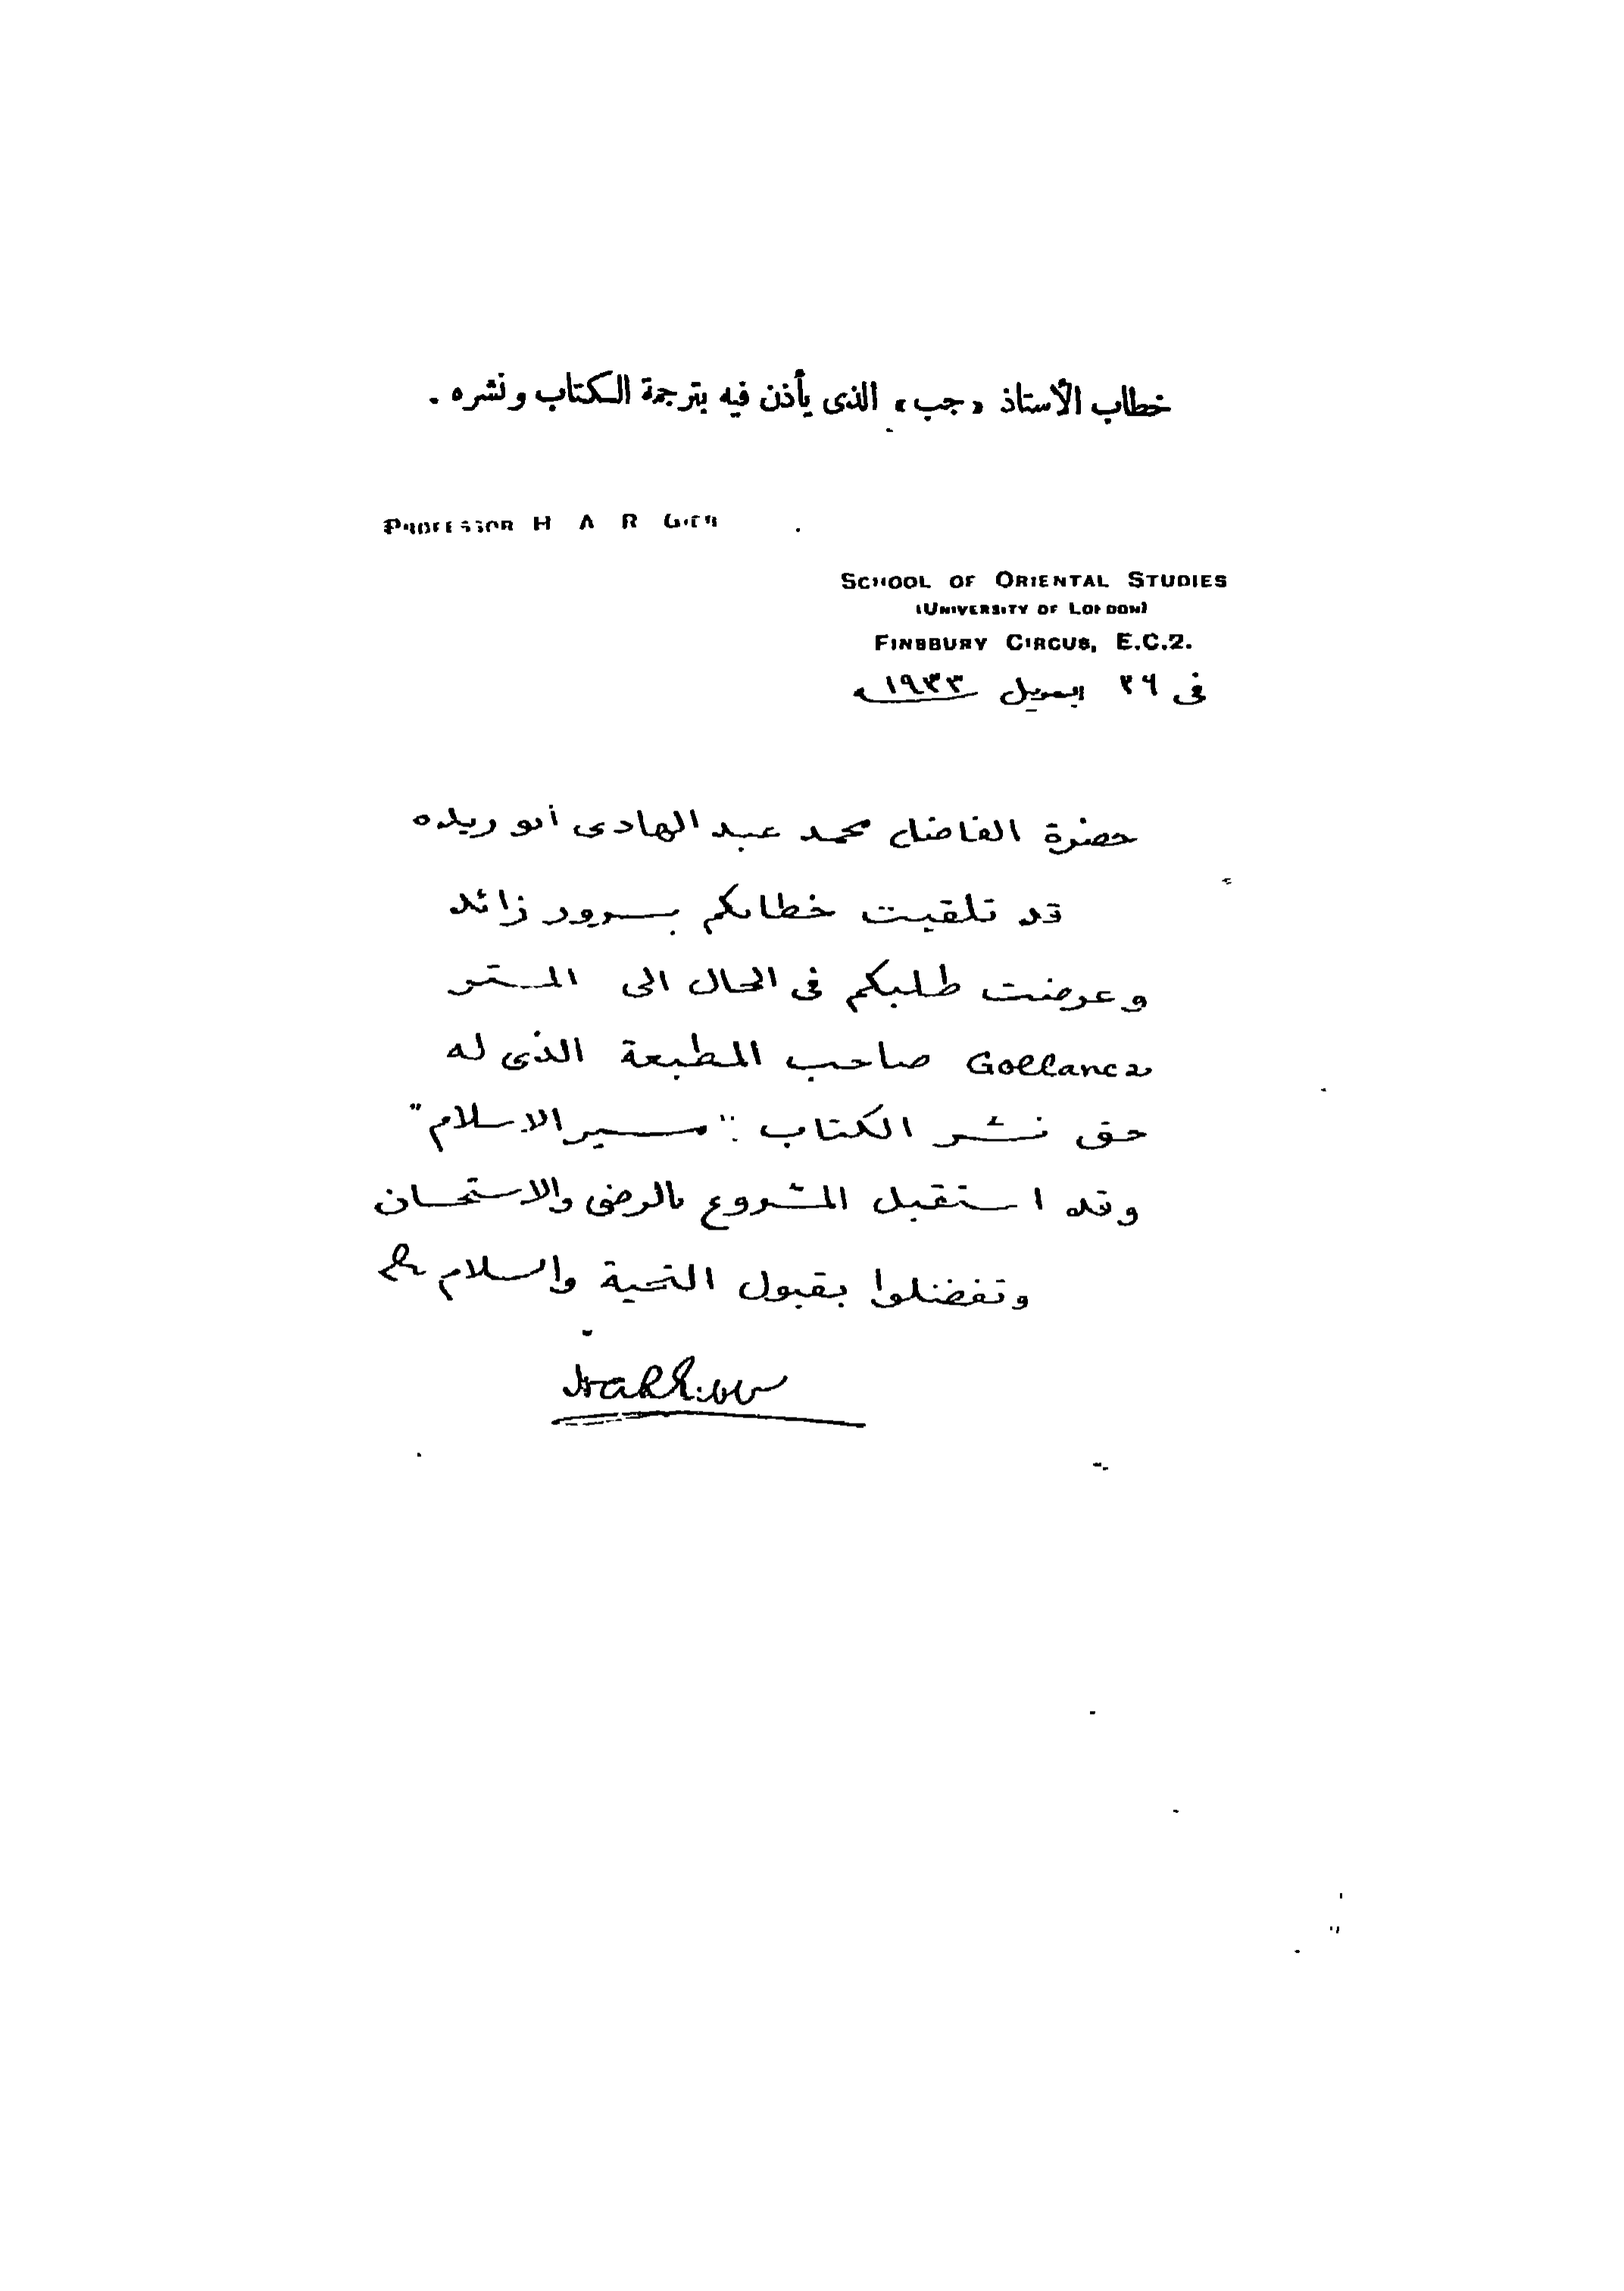 خطاب الأستاذ «جب» الذى يأذن فيه بترجمة الكتاب ونشره .
PROFESSOR H A R GIBB
SCHOOL OF ORIENTAL STUDIES
(UNIVERSITY OF LONDON)
FINSBURY CIRCUS, E.C.2.
فى ٢٦ ابريل ١٩٣٣
حضرة الفاضل محمد عبد الهادى ابو ريده
قد تلقيت خطابكم بسرور زائد
وعرضت طلبكم فى الحال الى المستر
Gollancz صاحب المطبعة الذى له
حق نشر الكتاب : "مسير الاسلام"
وقد استقبل المشروع بالرضى والاستحسان
وتفضلوا بقبول التحية والسلام
HARGibb